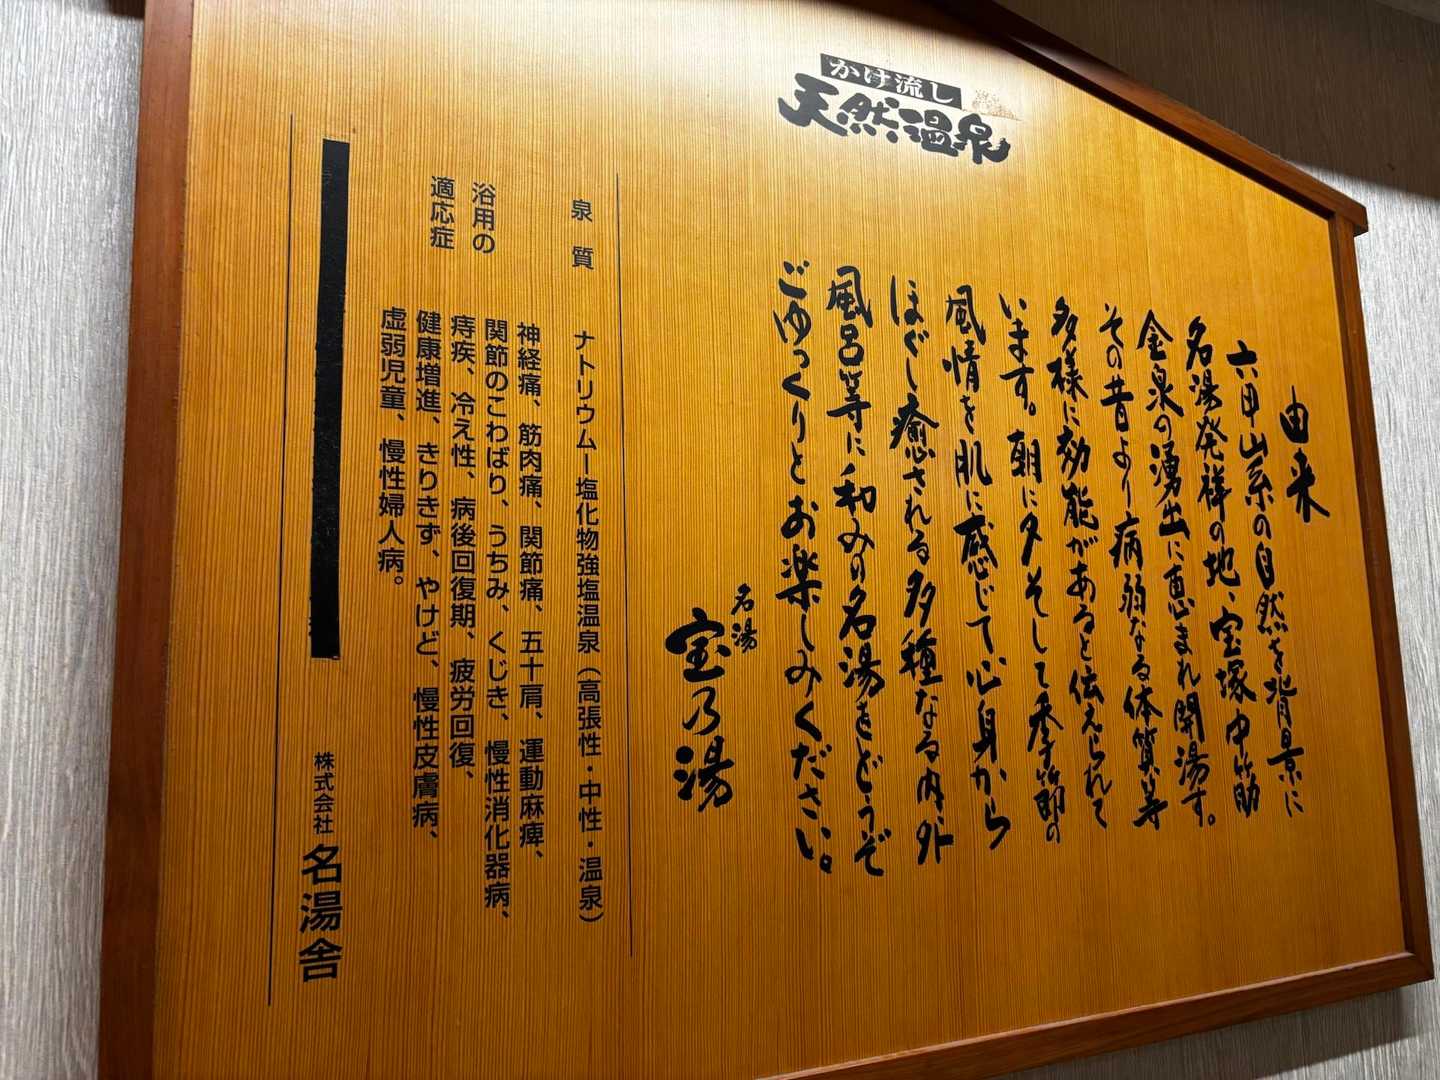 かけ流し
天然温泉
由来
六甲山系の自然を背景に
名湯発祥の地、宝塚中筋
金泉の湧出に恵まれ開湯す。
その昔より病弱なる体質等
多様に効能があると伝えられて
います。朝に夕そして季節の
風情を肌に感じて心身から
ほぐし癒される多種なる内外
風呂等に和みの名湯をどうぞ
ごゆっくりとお楽しみください。
名湯
宝乃湯
泉質 ナトリウム－塩化物強塩温泉(高張性・中性・温泉)
浴用の
適応症
神経痛、筋肉痛、関節痛、五十肩、運動麻痺、
関節のこわばり、うちみ、くじき、慢性消化器病、
痔疾、冷え性、病後回復期、疲労回復、
健康増進、きりきず、やけど、慢性皮膚病、
虚弱児童、慢性婦人病。
株式会社 名湯舎